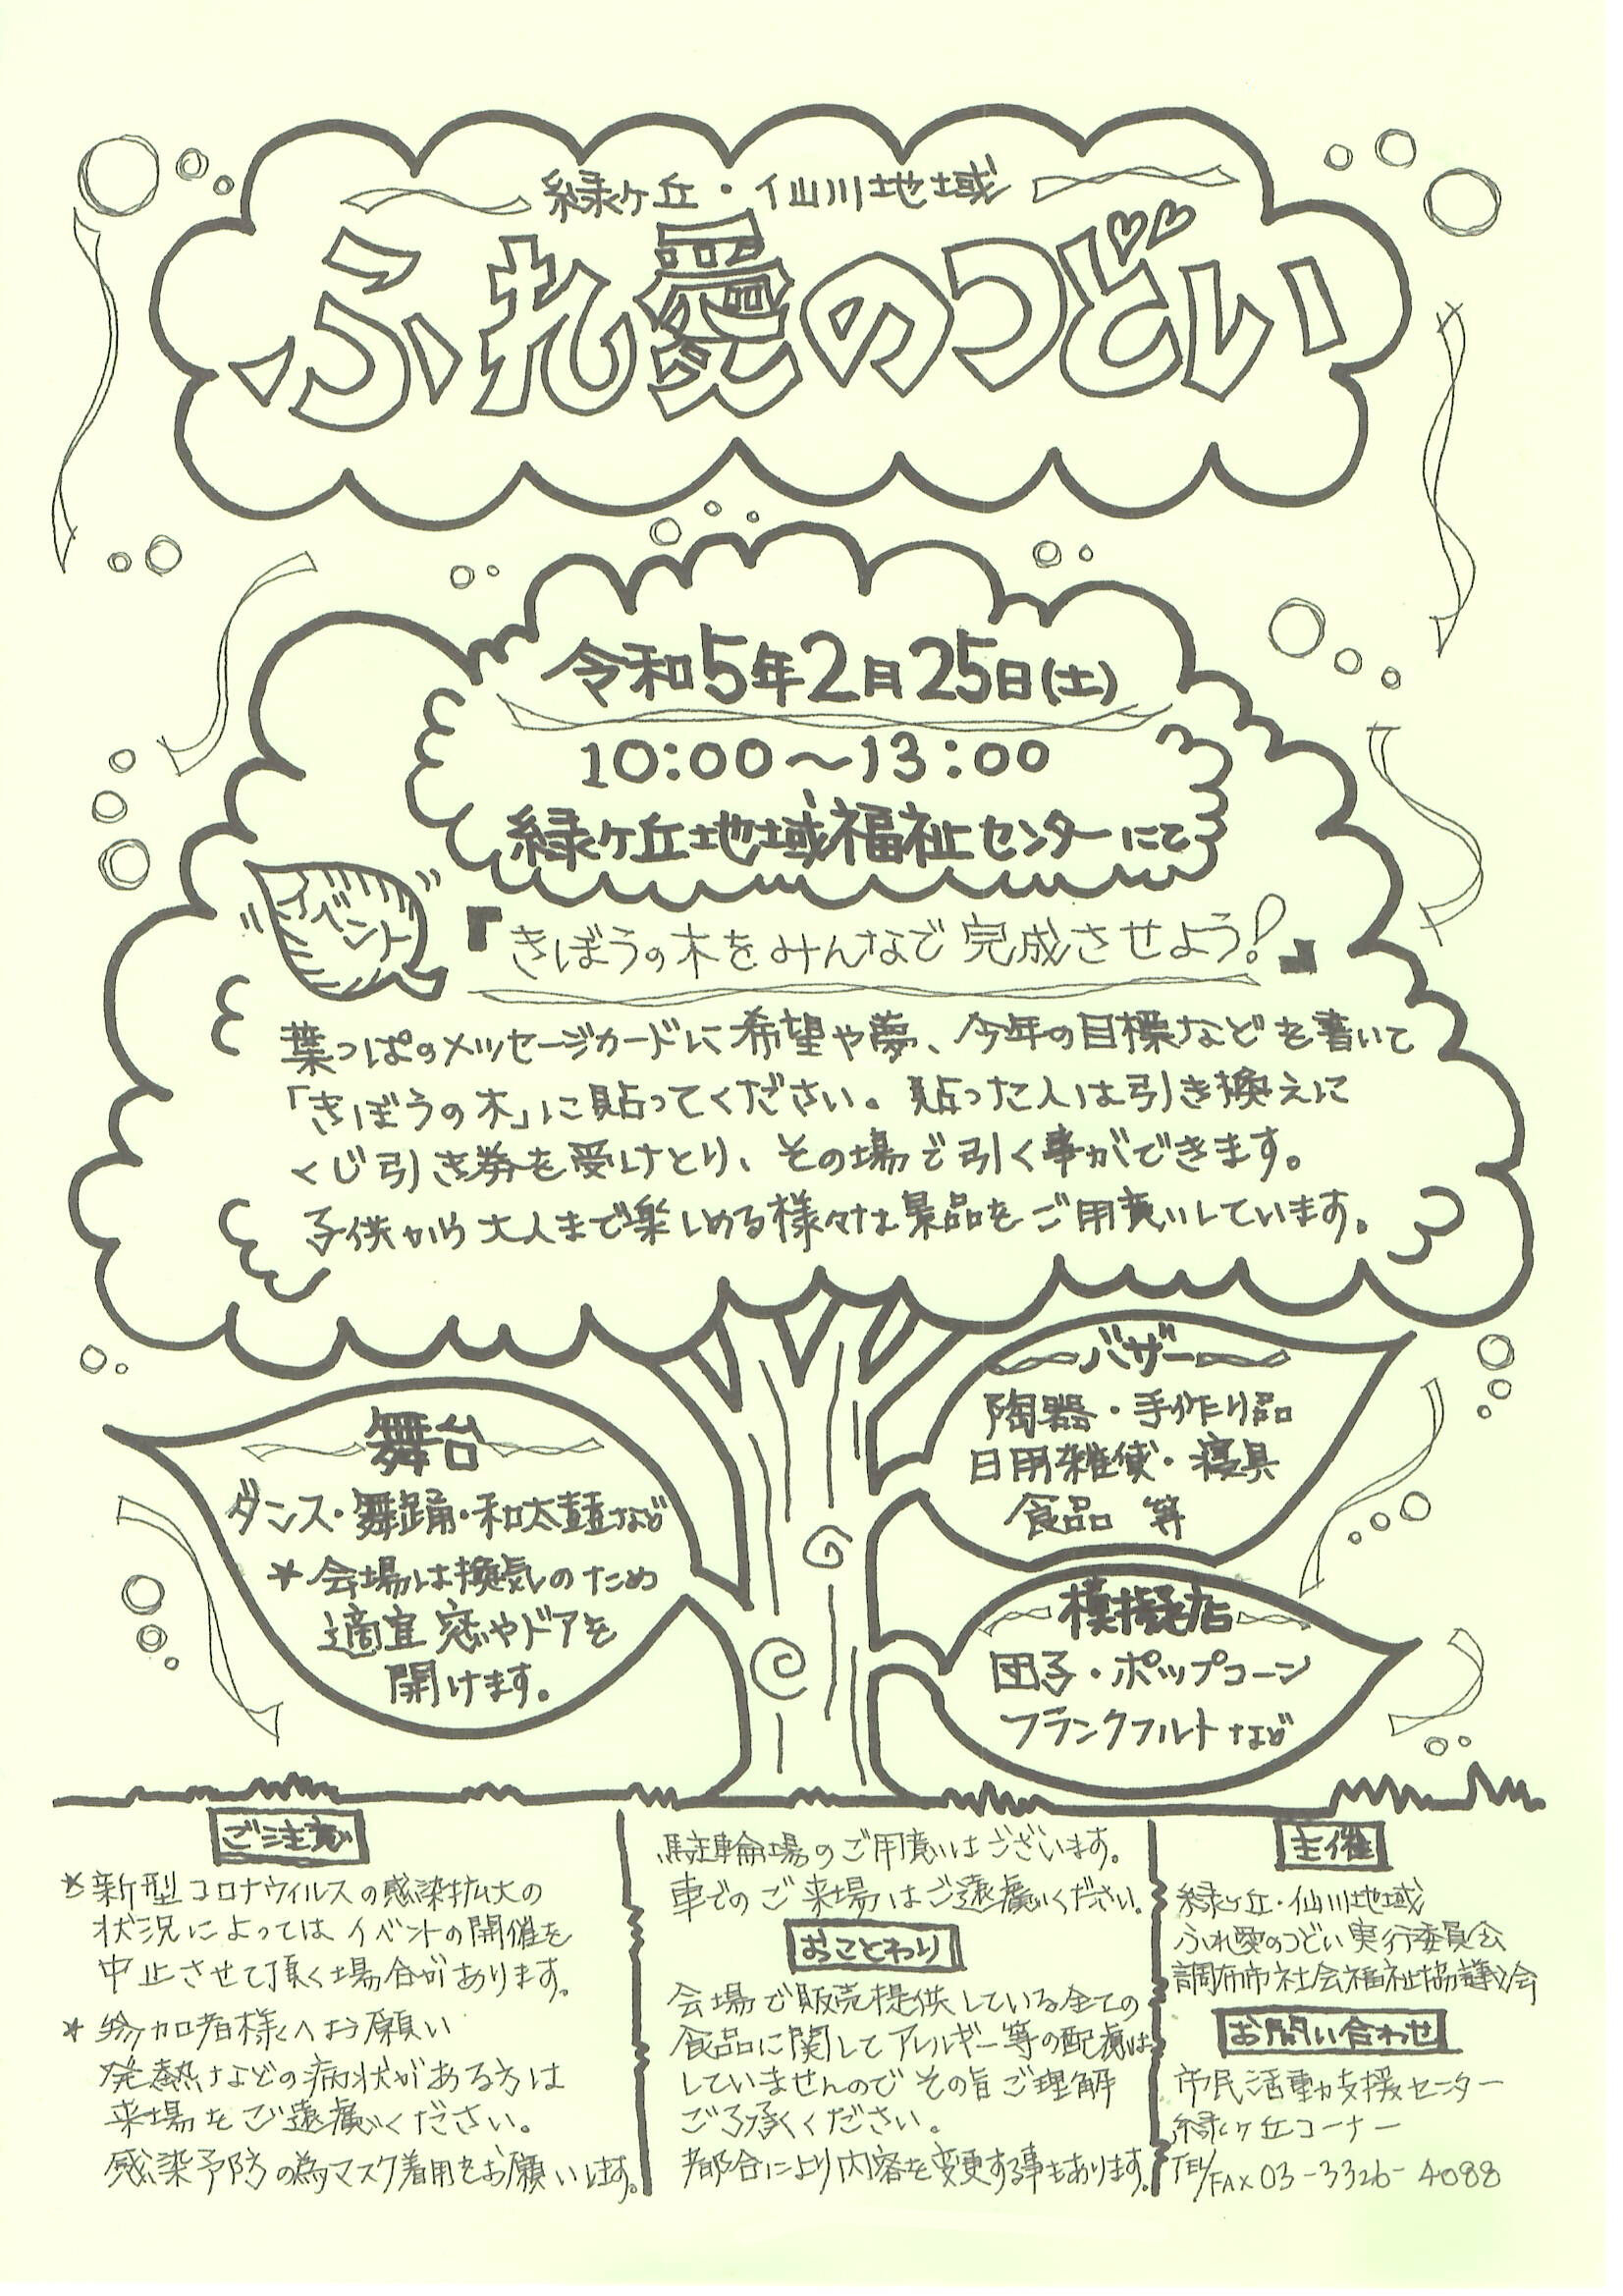 緑ヶ丘・仙川地域
ふれ愛のつどい
令和5年2月25日(土)
10:00～13:00
緑ヶ丘地域福祉センターにて
イベント
『きぼうの木をみんなで完成させよう!』
葉っぱのメッセージカードに希望や夢、今年の目標などを書いて
「きぼうの木」に貼ってください。貼った人は引き換えに
くじ引き券を受けとり、その場で引く事ができます。
子供から大人まで楽しめる様々な景品をご用意しています。
舞台
ダンス・舞踊・和太鼓など
*会場は換気のため
適宜窓やドアを
開けます。
バザー
陶器・手作り品
日用雑貨・寝具
食品 等
模擬店
団子・ポップコーン
フランクフルトなど
ご注意
*新型コロナウィルスの感染拡大の
状況によってはイベントの開催を
中止させて頂く場合があります。
*参加者様へお願い
発熱などの病状がある方は
来場をご遠慮ください。
感染予防の為マスク着用をお願いします。
駐輪場のご用意はございます。
車でのご来場はご遠慮ください。
おことわり
会場で販売提供している全ての
食品に関してアレルギー等の配慮は
していませんのでその旨ご理解
ご了承ください。
都合により内容を変更する事もあります。
主催
緑ヶ丘・仙川地域
ふれ愛のつどい実行委員会
調布市社会福祉協議会
お問い合わせ
市民活動支援センター
緑ヶ丘コーナー
TEL/FAX 03-3326-4088